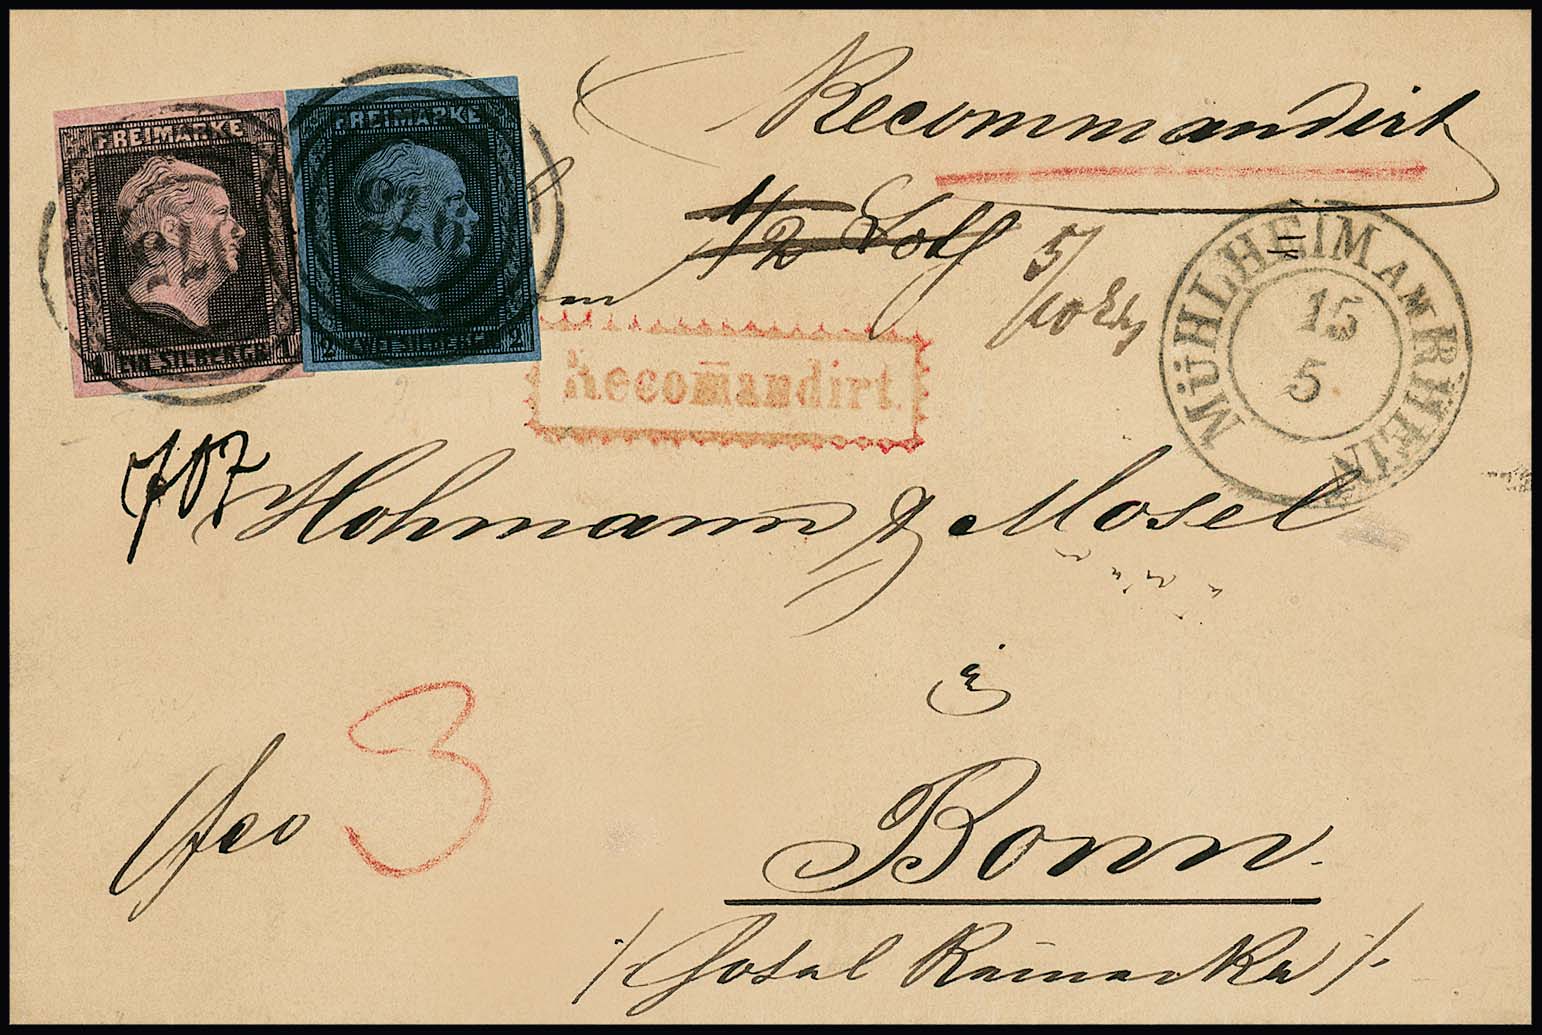 Recommandirt
FREIMARKE
FREIMARKE
1/2 Loth
5/
MÜHLHEIM AM RHEIN
15
5.
EIN SILBERGR. 1
2 ZWEI SILBERGR. 2
Recom̄andirt.
707
Hohmann & Mosel
in
fco 3
Bonn.